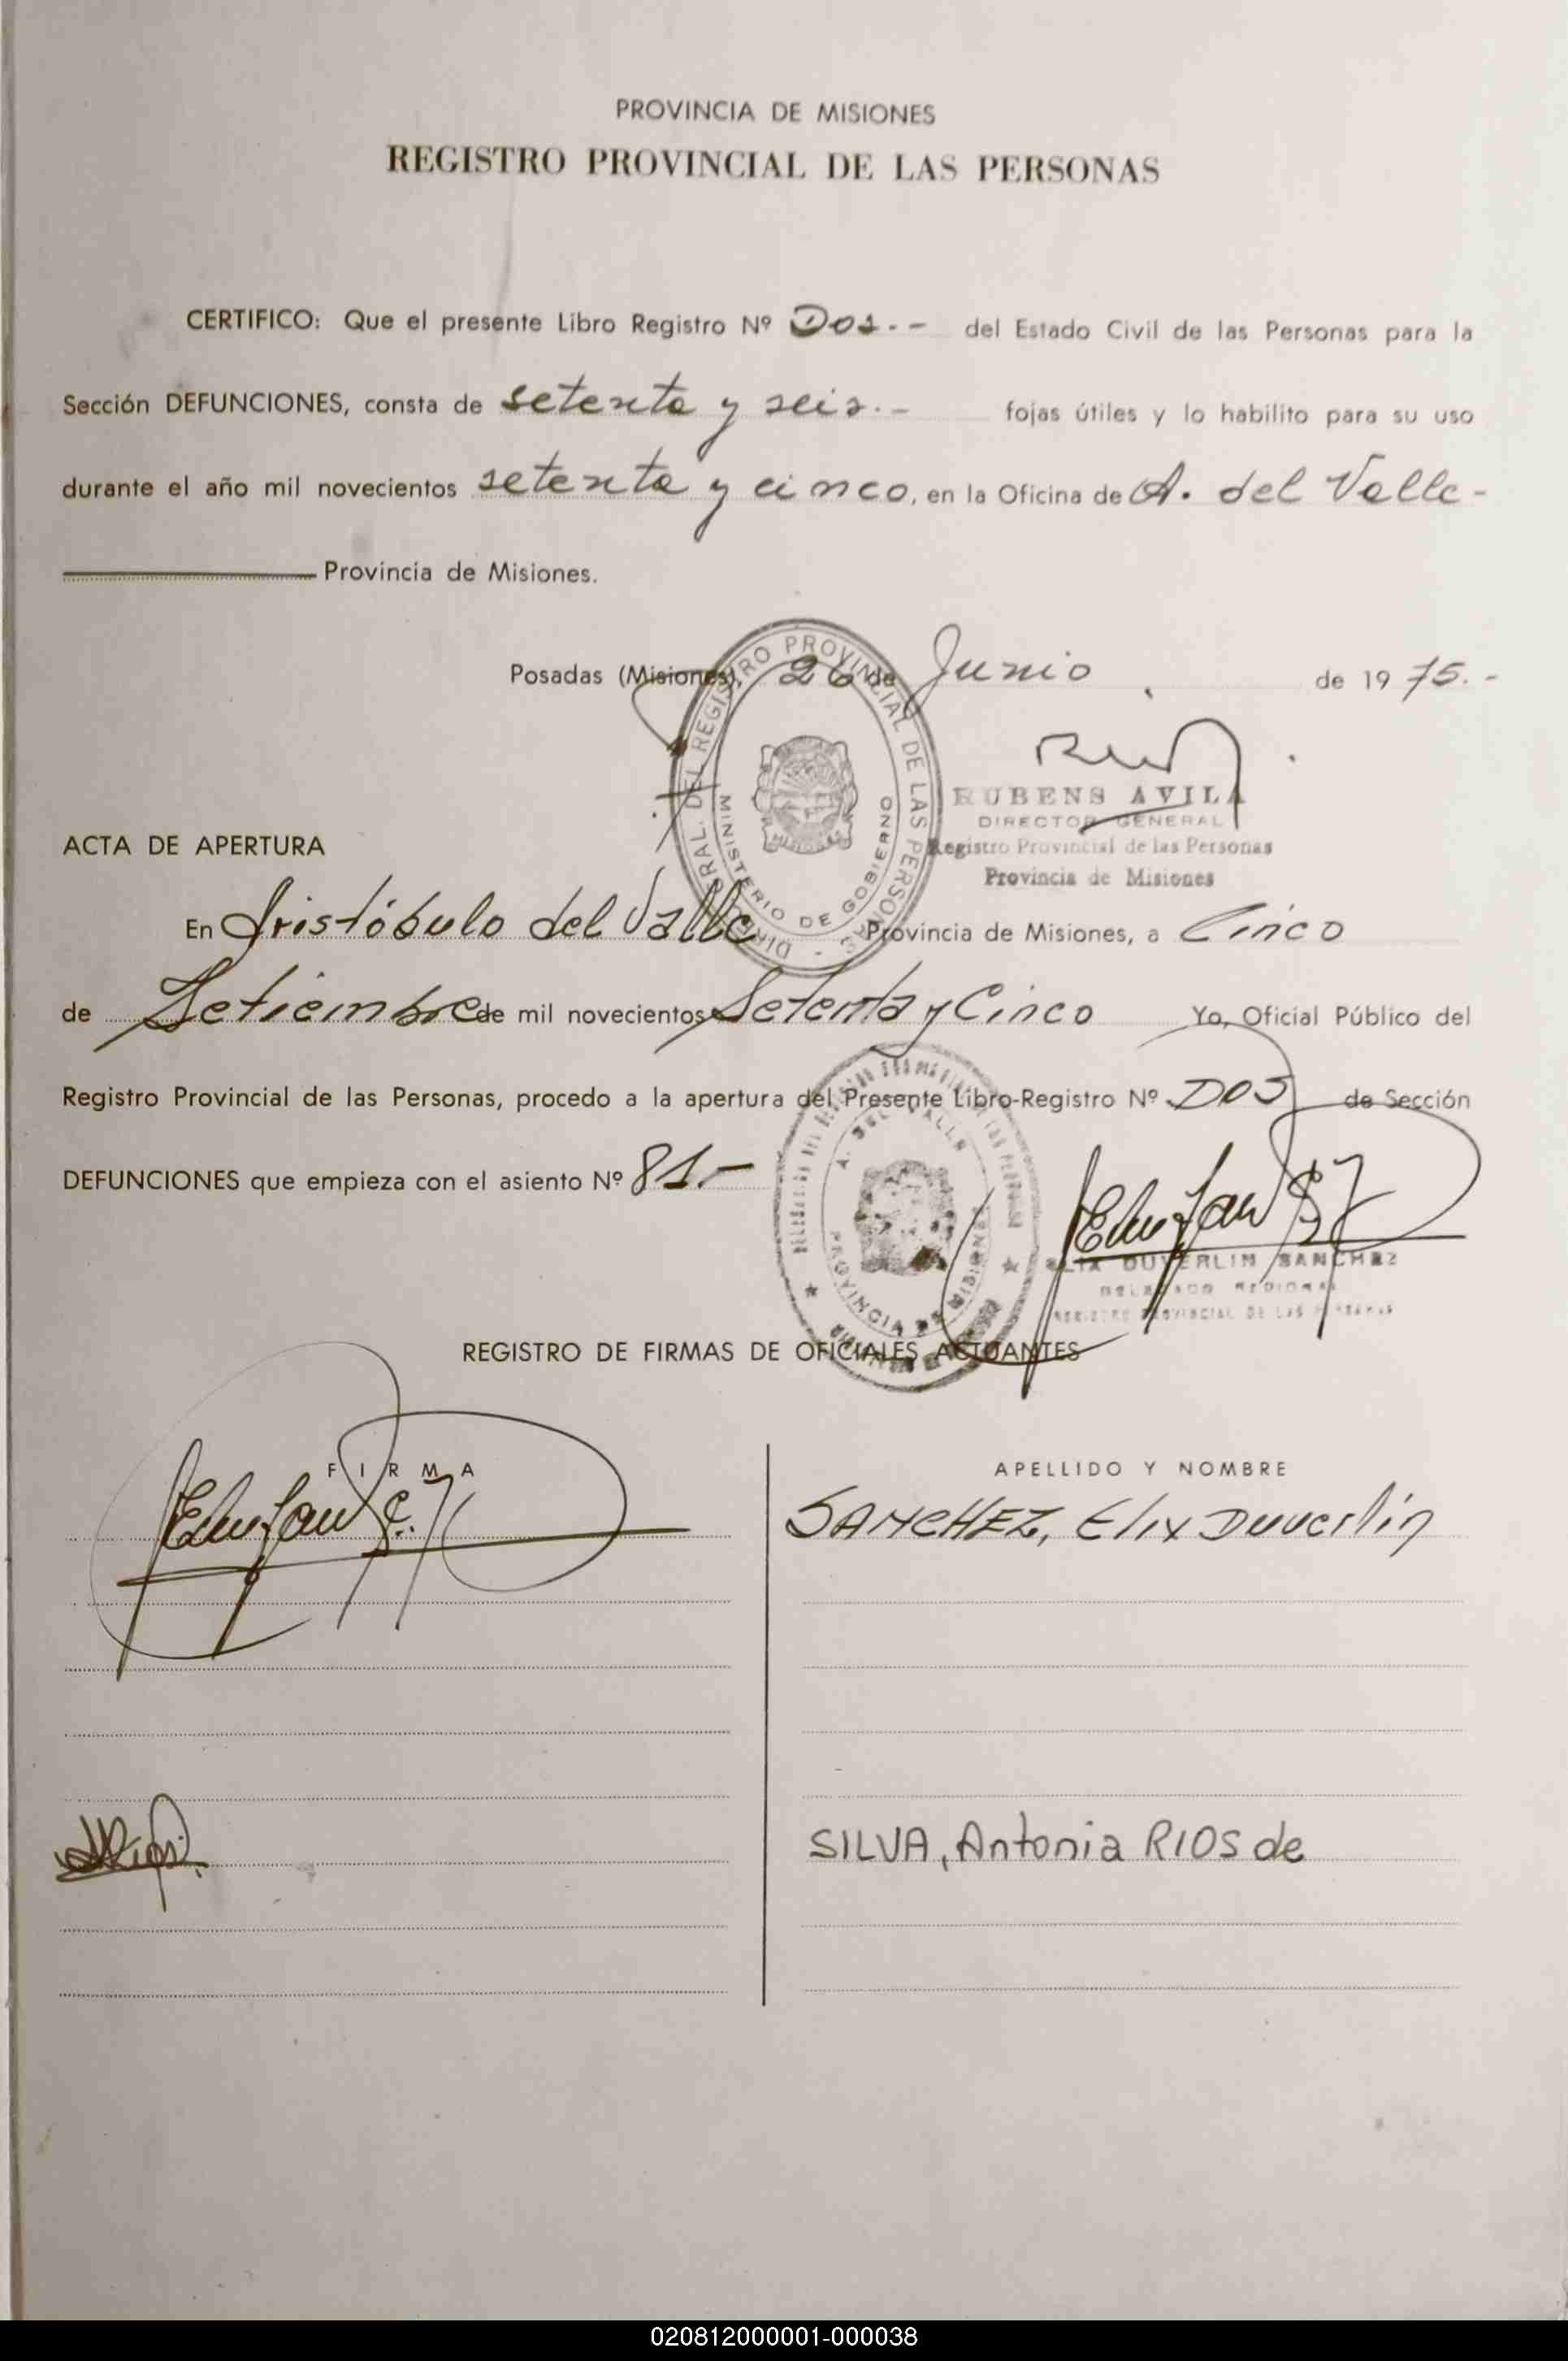 PROVINCIA DE MISIONES
REGISTRO PROVINCIAL DE LAS PERSONAS
CERTIFICO: Que el presente Libro Registro Nº Dos.- del Estado Civil de las Personas para la
Sección DEFUNCIONES, consta de setenta y seis.- fojas útiles y lo habilito para su uso
durante el año mil novecientos setenta y cinco, en la Oficina de A. del Valle-
Provincia de Misiones.
Posadas (Misiones), 26 de Junio de 1975.-
RUBENS AVILA
DIRECTOR GENERAL
Registro Provincial de las Personas
Provincia de Misiones
DEL REGISTRO PROVINCIAL DE LAS PERSONAS
MINISTERIO DE GOBIERNO
ACTA DE APERTURA
En Aristóbulo del Valle Provincia de Misiones, a Cinco
de Setiembre de mil novecientos Setenta y Cinco Yo, Oficial Público del
Registro Provincial de las Personas, procedo a la apertura del Presente Libro-Registro Nº DOS de Sección
DEFUNCIONES que empieza con el asiento Nº 81.-
A. DEL VALLE
PROVINCIA DE MISIONES
ELIX DUVERLIN SANCHEZ
DELEGADO REGIONAL
REGISTRO PROVINCIAL DE LAS PERSONAS
REGISTRO DE FIRMAS DE OFICIALES ACTUANTES
FIRMA
APELLIDO Y NOMBRE
SANCHEZ, Elix Duverlin
SILVA, Antonia RIOS de
020812000001-000038